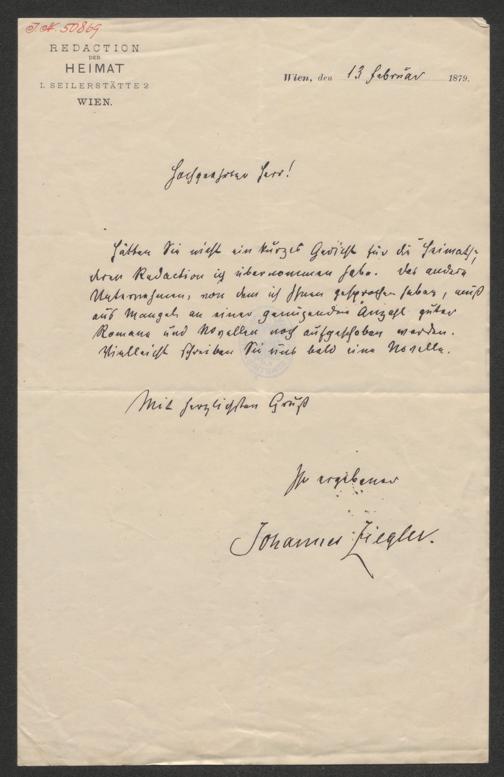 J.N. 50869
REDACTION
DER
HEIMAT
I. SEILERSTÄTTE 2
WIEN.
Wien, den 13 Februar 1879.
Hochgeehrter Herr!
Hätten Sie nicht ein kurzes Gedicht für die „Heimath“,
deren Redaction ich übernommen habe. Das andere
Unternehmen, von dem ich Ihnen gesprochen habe, muß
aus Mangel an einer genügenden Anzahl guter
Romane und Novellen noch aufgeschoben werden.
Vielleicht schreiben Sie uns bald eine Novelle.
Mit herzlichsten Gruß
Ihr ergebener
Johannes Ziegler.